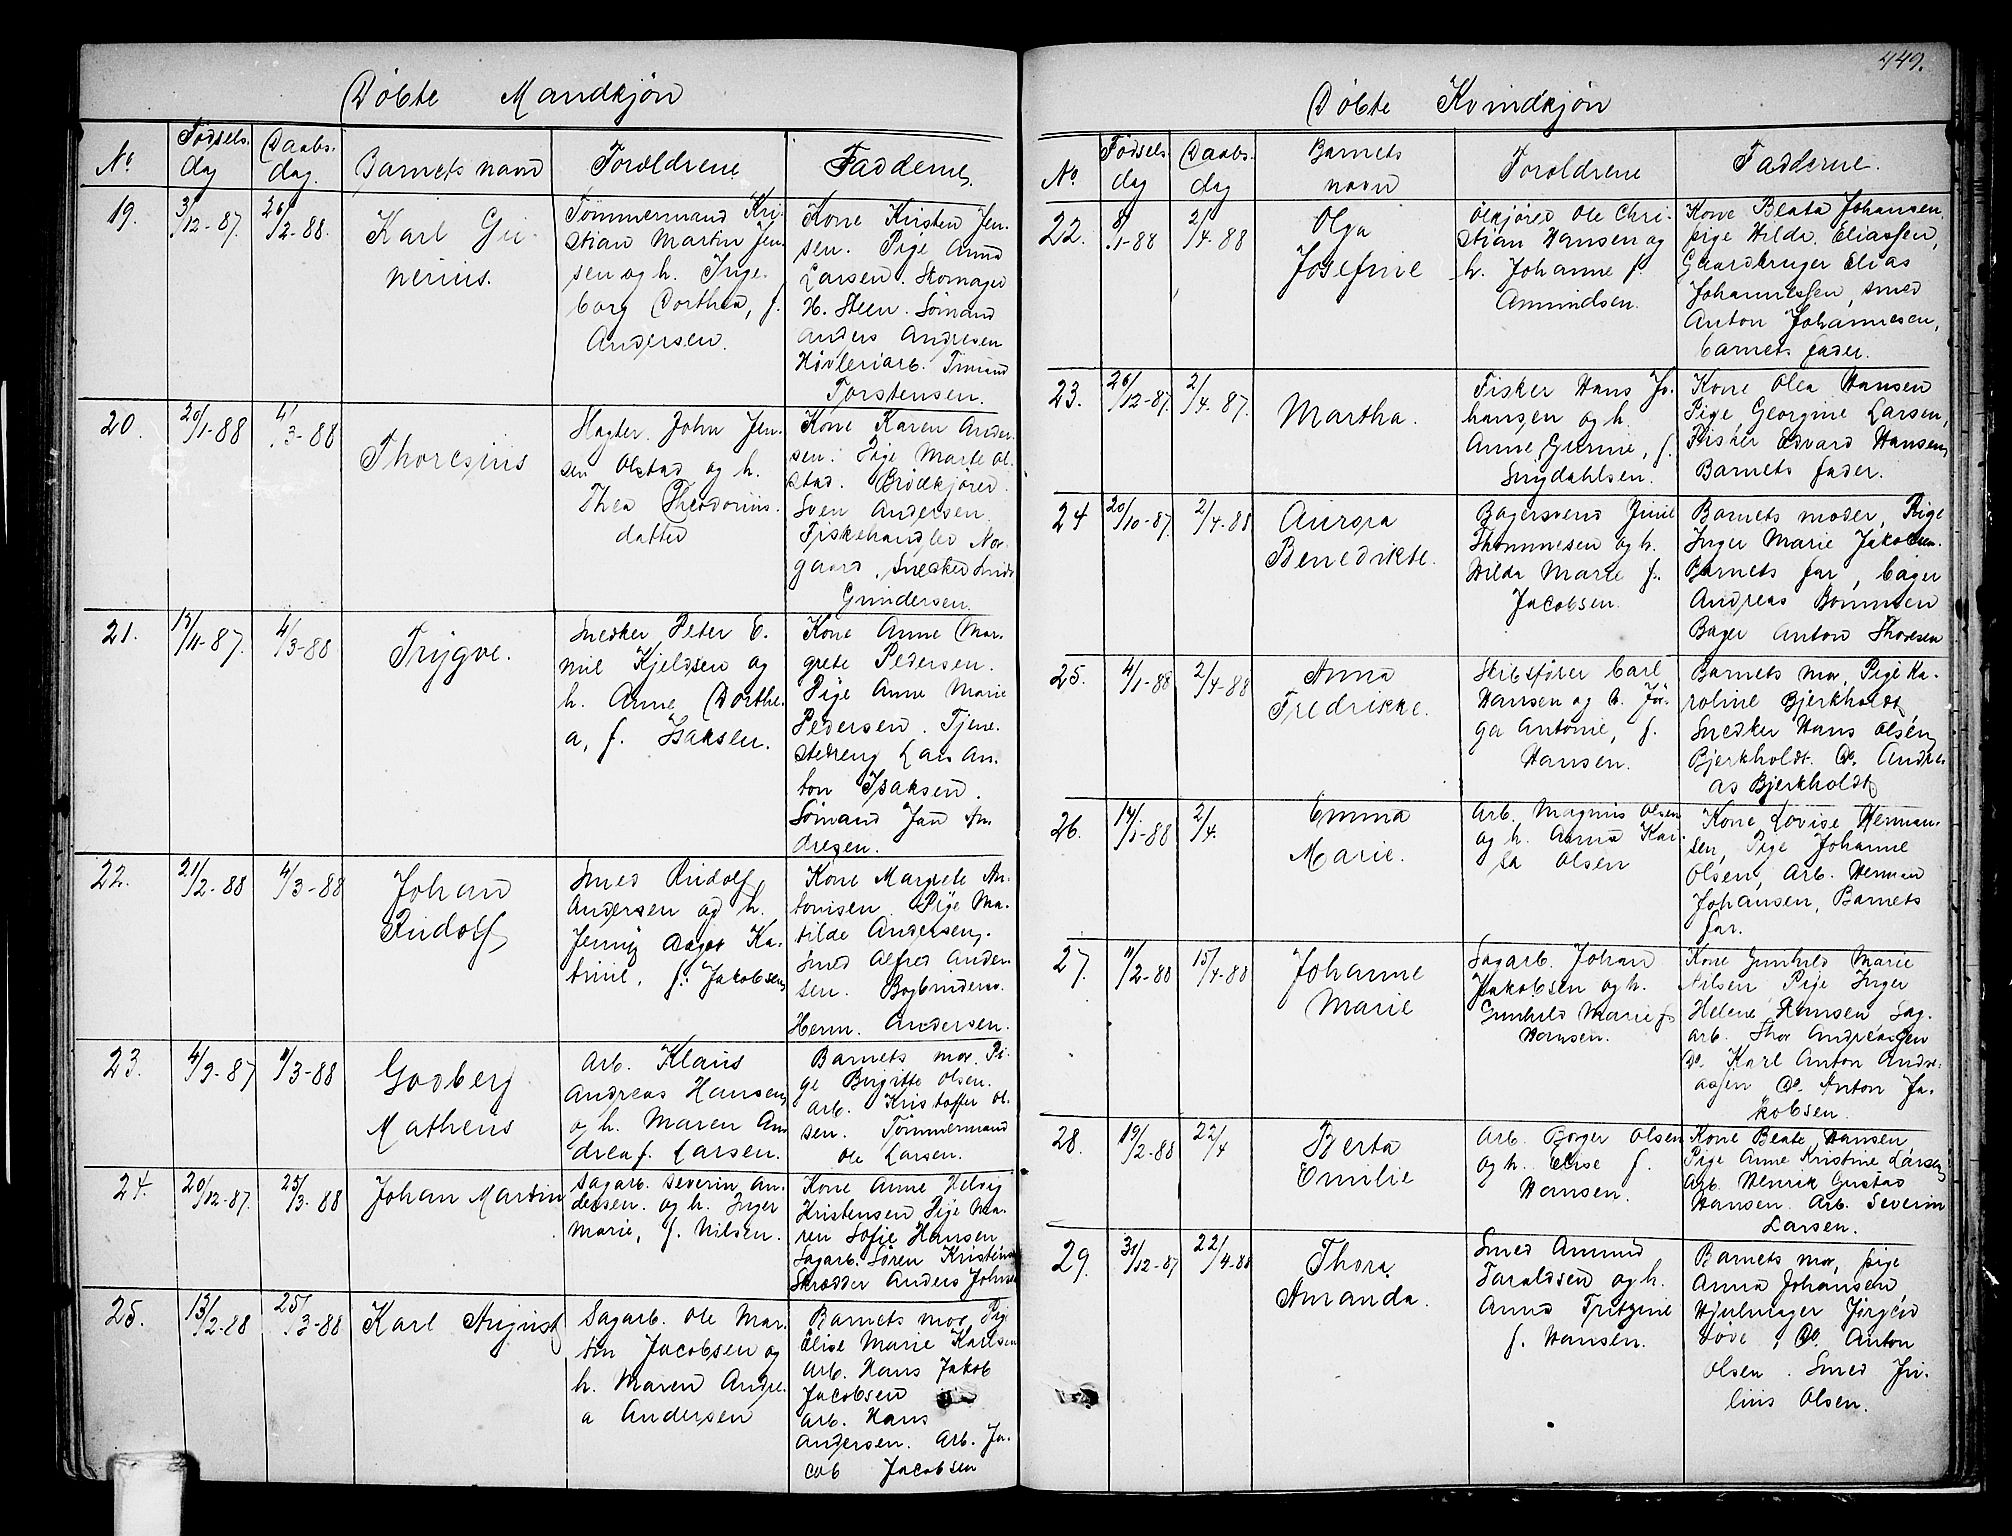 Døbte Mandkjøn
No. Fødsels- dag Daabs- dag. Barnets navn Forældrene Fadderne.
19. 3/12-87. 26/2-88. Karl Gu-
nerius.
Tømmermand Kri-
stian Martin Jen-
sen og h. Inge-
borg Dorthea, f.
Andersen.
Kone Kirsten Jen-
sen. Pige Anna
Larsen. Skomager
H. Steen. Sømand
Anders Andresen
Høvleriarb.
Torstensen.
20. 20/1-88 4/3-88 Thoresius
John Jen-
sen Olstad og h.
Thea Theodorius-
datter
Kone Karen Ander-
sen. Pige Marte Ol-
stad. Brødkjører
Sven Andersen.
Fiskehandler Nor-
gaard. Snedker
Gundersen.
21. 4/3-88 Trygve.
Snedker Peter E-
mil Kjeldsen og
h. Anne Dorthe-
a, f. Isaksen.
Kone Anne Mar-
grete Pedersen.
Pige Anne Marie
Pedersen. Tjene-
stedreng Lars An-
ton Isaksen.
Sømand Jan An-
dresen.
22. 21/2-88 4/3-88 Johan
Rudolf
Smed Rudolf
Andersen og h.
Jenny Dagot Ka-
trine, f. Jakobsen
Kone Margrete An-
tonisen Pige Ma-
tilde Andersen.
Smed Alfred Ander-
sen. Bogbindersv.
Herm. Andersen.
23. 4/9-87 11/3-88 Godberg
Matheus
Arb. Klaus
Andreas Hansen
og h. Maren An-
drea f. Larsen.
Barnets mor. Pi-
ge Birgitte Olsen.
Arb. Kristoffer Ol-
sen. Tømmermand
Ole Larsen.
24. 20/12-87. 25/3-88 Johan Martin
Sagarb. Severin An-
dersen. og h. Inger
Marie, f. Nilsen.
Kone Anne Helvig
Kristensen Pige Ma-
ren Sofie Hansen
Sagarb. Søren Kristens
Skrædder Anders Johns
25. 13/2-88 25/3-88 Karl August
Sagarb. Ole Mar-
tin Jacobsen og
h. Maren Andre-
a Andersen
Barnets mor, Pige
Elise Marie Karlsen
Arb. Hans Jakob
Jacobsen
Arb. Hans
Andersen. Arb. Ja-
cob Jacobsen
449.
Døbte Kvindkjøn
No. Fødsels- dag Daabs- dag Barnets navn Forældrene Fadderne.
22. 8/1-88 2/4-88 Olga
Josefine
Ølkjører Ole Chri-
stian Hansen og
h. Johanne f.
Amundsen.
Kone Beata Johansen,
pige Hilda Eliassen,
Gaardbruger Elias
Johannessen, smed
Anton Johannesen,
barnets fader.
23. 26/12-87. 2/4-87. Martha.
Fisker Hans Jo-
hansen og h.
Anne Gurine, f.
Kone Olea Hansen
Pige Georgine Larsen,
Fisker Edvard Hansen,
Barnets fader.
24 20/10-87. 2/4-88 Aurora
Benedikte.
Bagersvend June
Thommesen og h.
Hilda Marie f.
Jacobsen.
Barnets moder, Pige
Inger Marie Jakobsen.
Barnets far, bager
Andreas
Bager Anton Thoresen
25. 4/1-88 2/4-88 Anna
Fredrikke.
Skibsfører Carl
Hansen og h. Jør-
ga Antonie, f.
Hansen.
Barnets mor, Pige Ka-
roline Bjerkholdt
Snedker Hans Olsen
Bjerkholdt. Do. Andre-
as Bjerkholdt
26. 14/1-88 2/4. Emma
Marie.
Arb. Magnus Olsen
og h. Anna Kai-
sa Olsen
Kone Lovise Herman-
sen, Pige Johanne
Olsen, Arb. Herman
Johansen, Barnets
far.
27. 11/2-88 15/4-88 Johanne
Marie
Sagarb. Johan
Jakobsen og h.
Gunhild Marie f.
Hansen.
Kone Gunhild Marie
Nilsen Pige Inger
Helene Hansen Sag-
arb. Thor Andreassen
Do. Karl Anton Andre-
assen Do. Anton Ja-
kobsen.
28. 19/2-88 22/4 Berta
Emilie
Arb. Borger Olsen
og h. Else f.
Hansen.
Kone Beate Hansen
Pige Anne Kristine Larsen
Arb. Henrik Gustav
Hansen. Arb. Severin
Larsen.
29. 31/12-87 22/4-88 Thora
Amanda.
Smed Amund
Taraldsen og h.
Anna Tritzine
f. Hansen.
Barnets mor, pige
Anna Johansen,
Hjulmager Jørgen
Løve, Do. Anton
Olsen. Smed Ju-
lius Olsen.